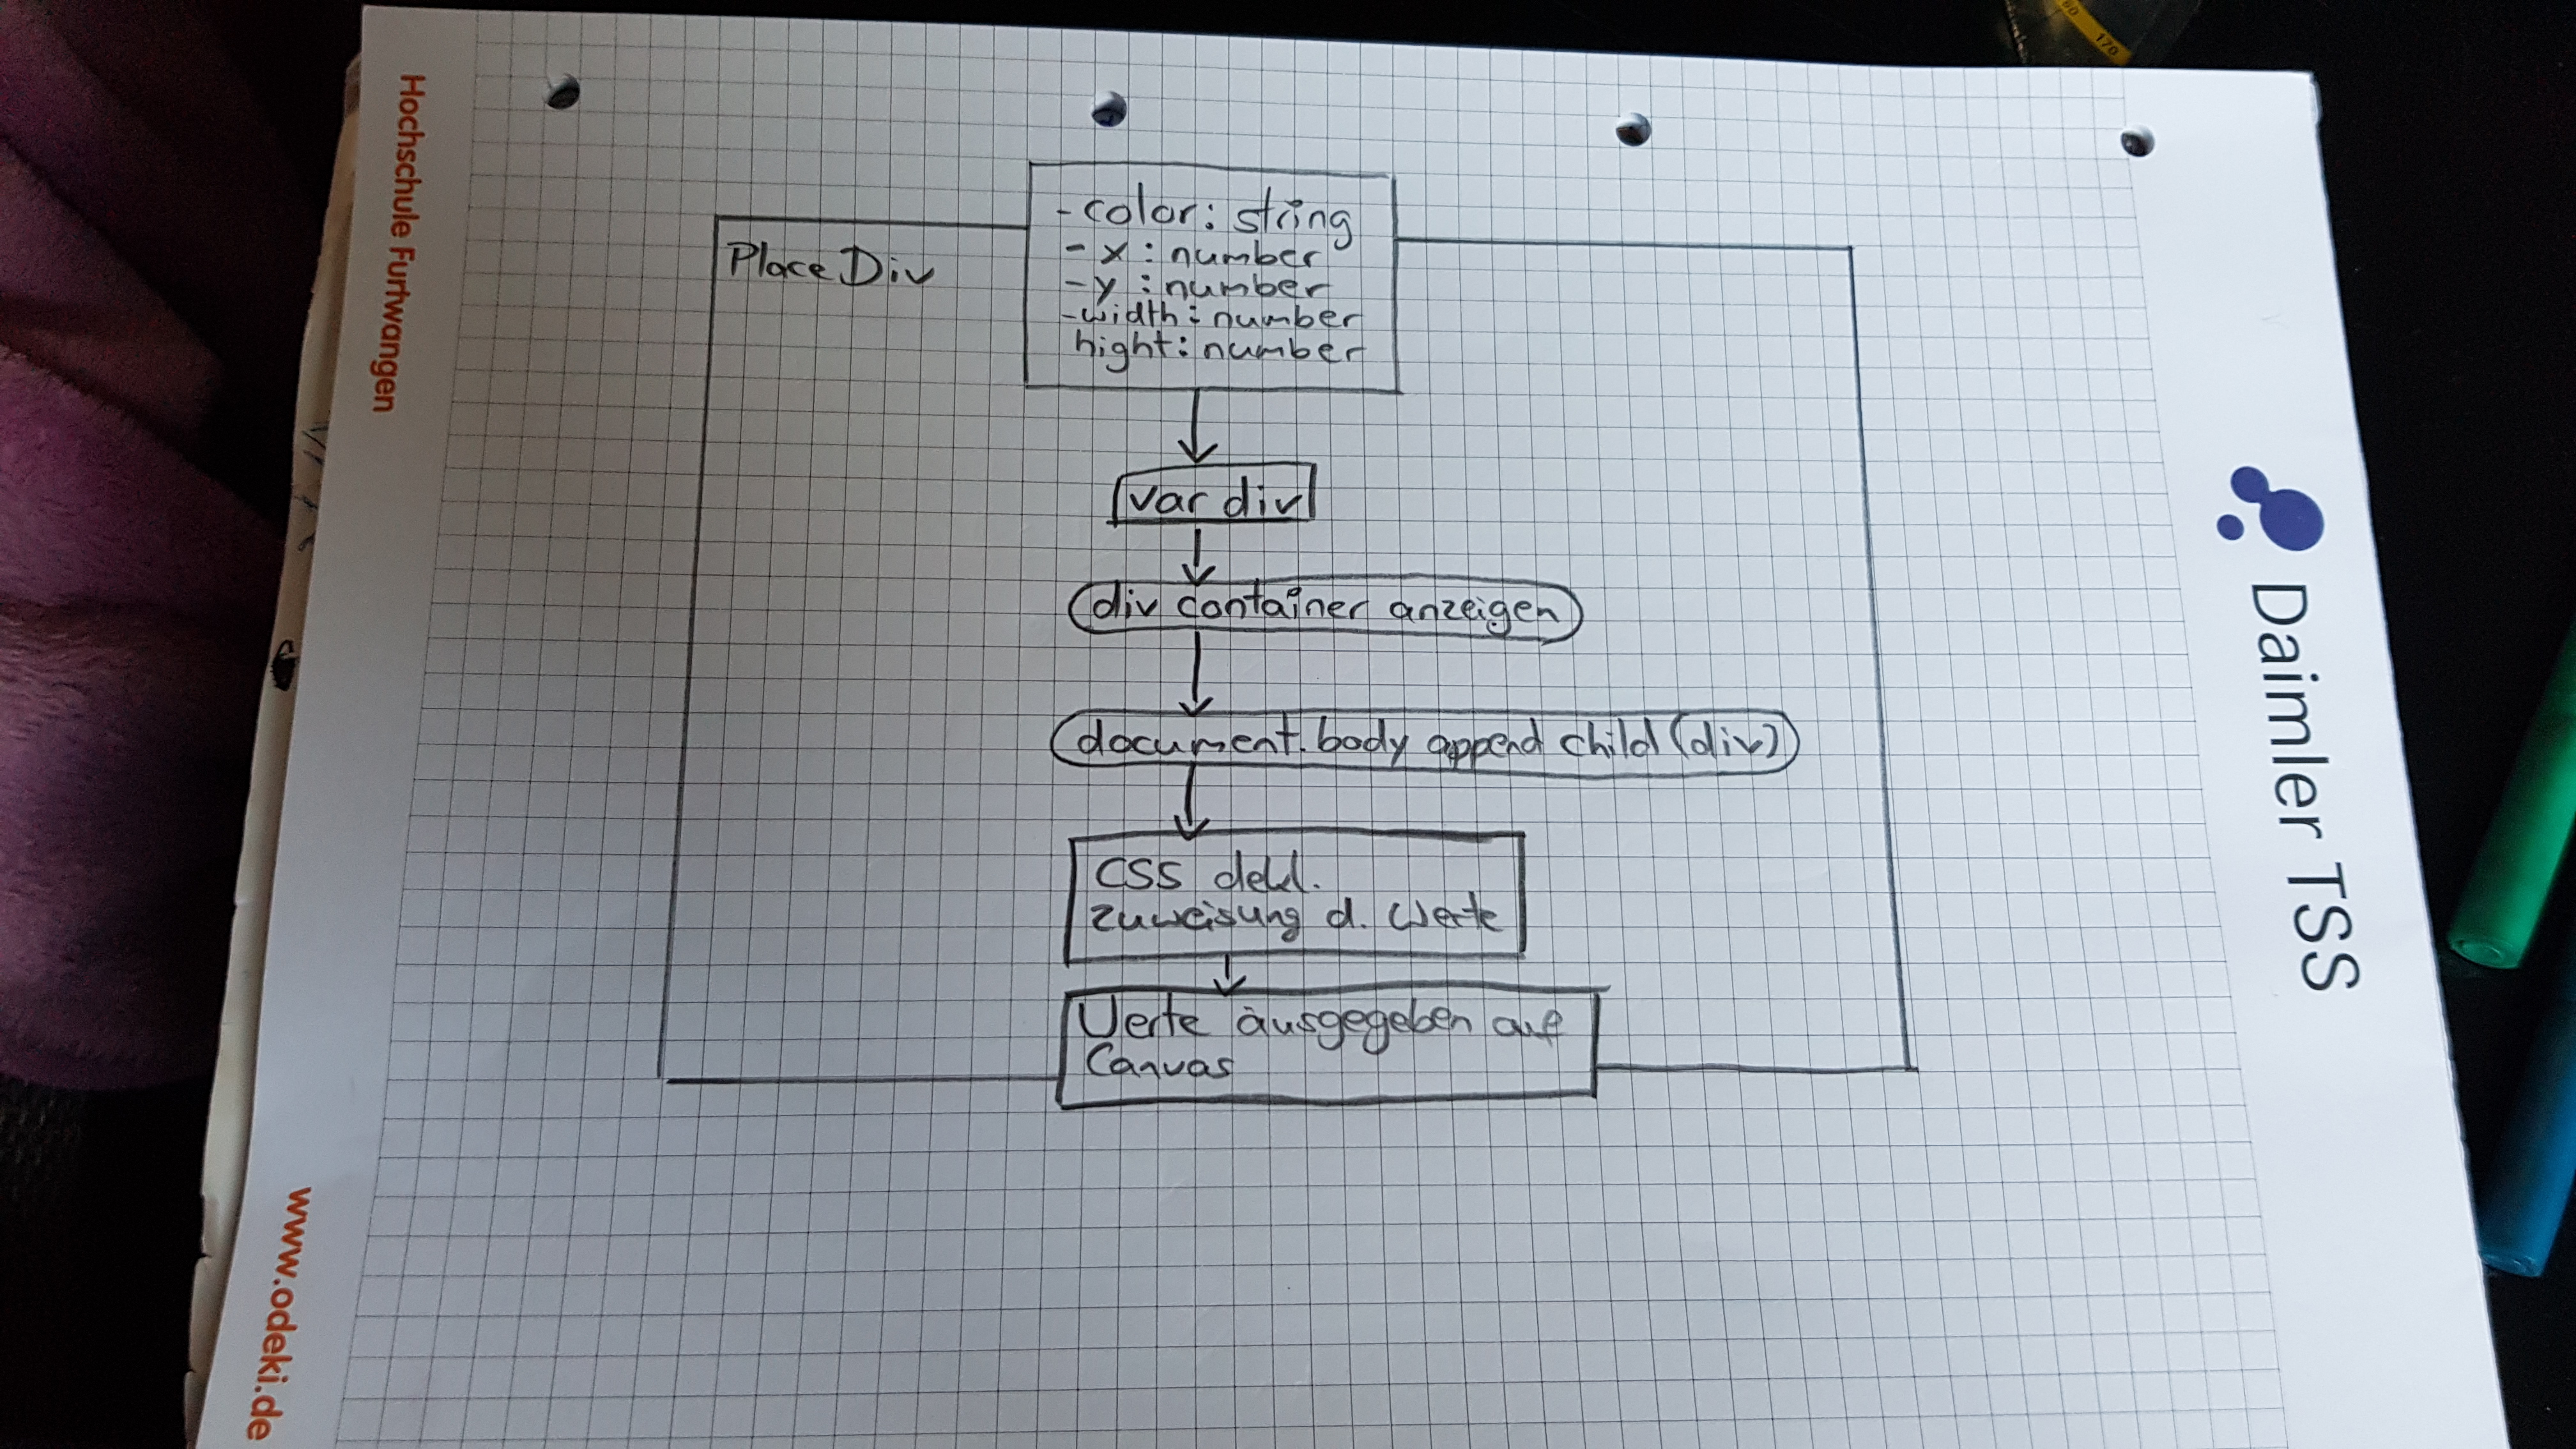 Hochschule Furtwangen
www.odeki.de
170
Place Div
- color: string
- x : number
- y : number
- width : number
hight : number
var div
div container anzeigen
document.body append child (div)
CSS dekl.
Zuweisung d. Werte
Werte ausgegeben auf
Canvas
Daimler TSS